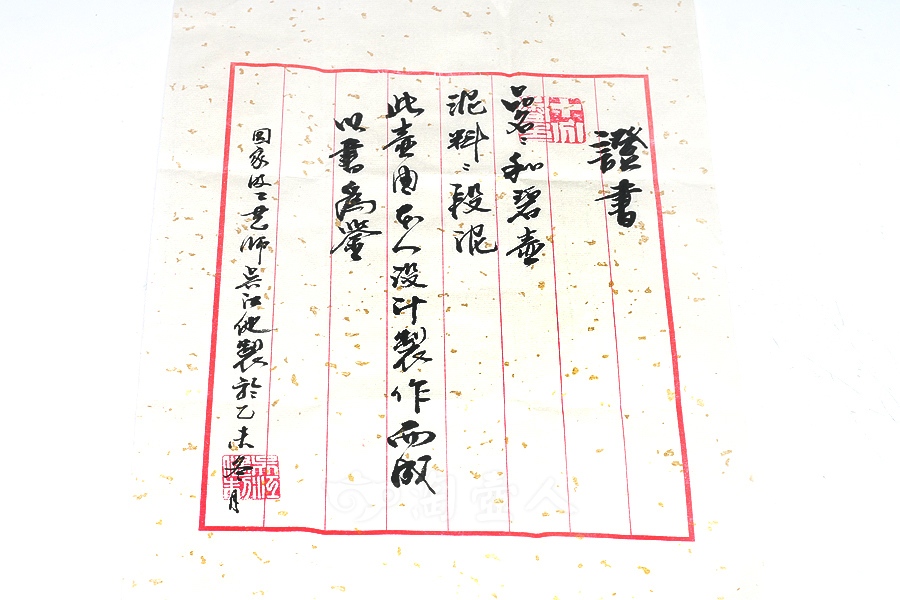 證書
品名:和碧壺
泥料:段泥
此壺由本人設计製作而成
以書為鑒
国家级工艺師吴江製於乙未冬月